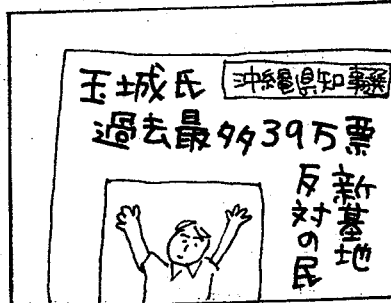 玉城氏
沖縄県知事選
過去最多39万票
新基地
反対の民